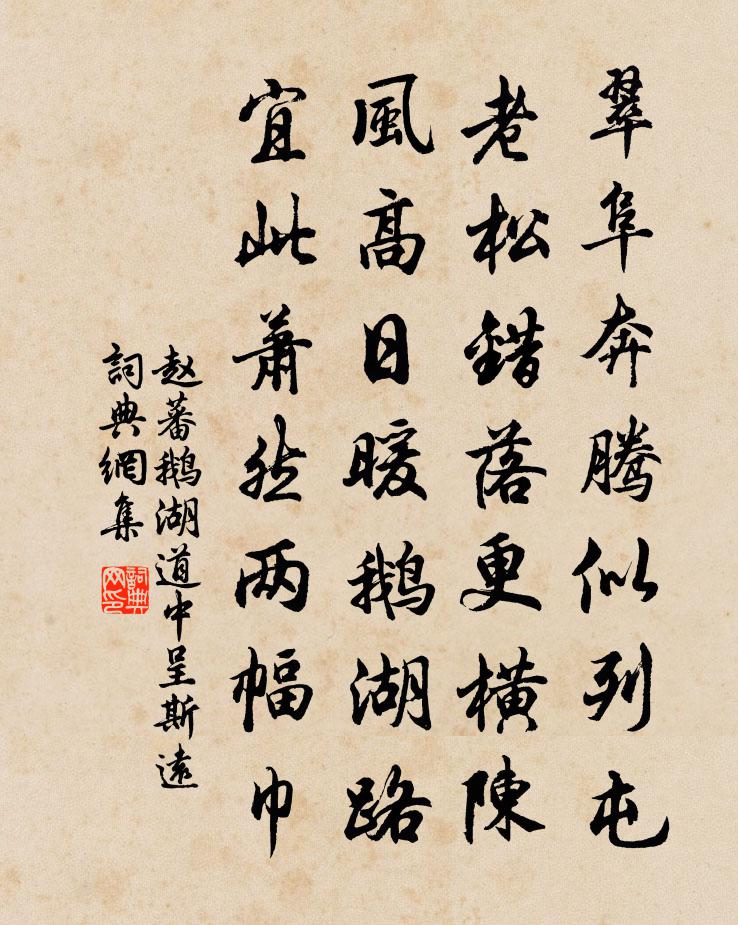 翠阜奔騰似列屯
老松錯落更橫陳
風高日暖鵝湖路
宜此蕭然兩幅巾
赵蕃鵝湖道中呈斯遠
詞典網集
詞典
网印